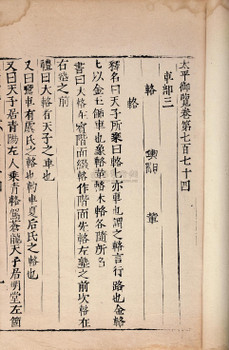 太平御覽卷第七百七十四
車部三
輅　輿　輦
輅
釋名曰天子所乘曰輅輅亦車也謂之輅言行路也金輅
玉以金玉飾車也象輅革輅木輅各隨所名
書曰大輅在賓階面綴輅在阼階面先輅在左塾之前次輅在
右塾之前
禮曰大輅者天子之車也
又曰鸞車有虞氏之輅也鉤車夏后氏之輅也
又曰天子居青陽左个乘青輅駕蒼龍天子居明堂左个